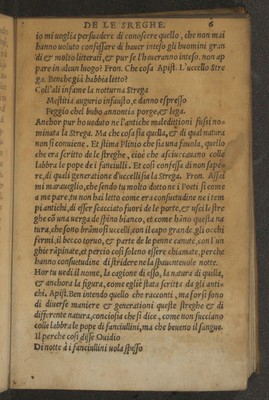 DE LE STREGHE. 6
io mi voglia persuadere di conoscere quello, che non mai
hanno voluto confessare di haver inteso gli huomini gran
di & molto litterati, & pur se l'haveranno inteso. non ap
pare in alcun luogo? Fron. Che cosa Apist. L'uccello Stre
ga. Benche già habbia letto?
Coll'ali infame la notturna Strega
Mestitia augurio infausto, e danno espresso
Peggio chel bubo annontia porge, & lega.
Anchor pur ho veduto ne l'antiche maledittioni fussi no=
minata la Strega. Ma che cosa sia quella, & di qual natura
non si conviene. Et stima Plinio che sia una favola, quello
che era scritto de le streghe, cioè che asciuccavano colle
labbra le pope de i fanciulli. Et così confessa di non sape=
re, di quali generatione d'uccelli sia la Strega. Fron. Assai
mi maraveglio, che sendo tu molto dotto ne i Poeti si come
a me pare, tu non hai letto come era consuetudine ne i tem
pi antichi, di esser scacciato fuori de le porte, & usci le stre
ghe cō una verga de spino bianco, et come hano questa na
tura, che sono bramosi uccelli, con il capo grande, gli occhi
fermi, il becco torvo, & parte de le penne canute, con l'un
ghie rapinate, et percio così soleno essere chiamate, perche
hanno consuetudine di stridere ne la spaventevole notte.
Hor tu vedi il nome, la cagione di esso, la natura di quella,
& anchora la figura, come egliè stata scritta da gli anti=
chi. Apist. Ben intendo quello che racconti, ma forsi sono
di diverse maniere & generationi queste streghe & di
differente natura, conciosia che si dice, come non succiano
colle labbra le pope di fanciullini, ma che beveno il sangue.
Il perche così disse Ovidio
Di notte à i fanciullini vola spesso